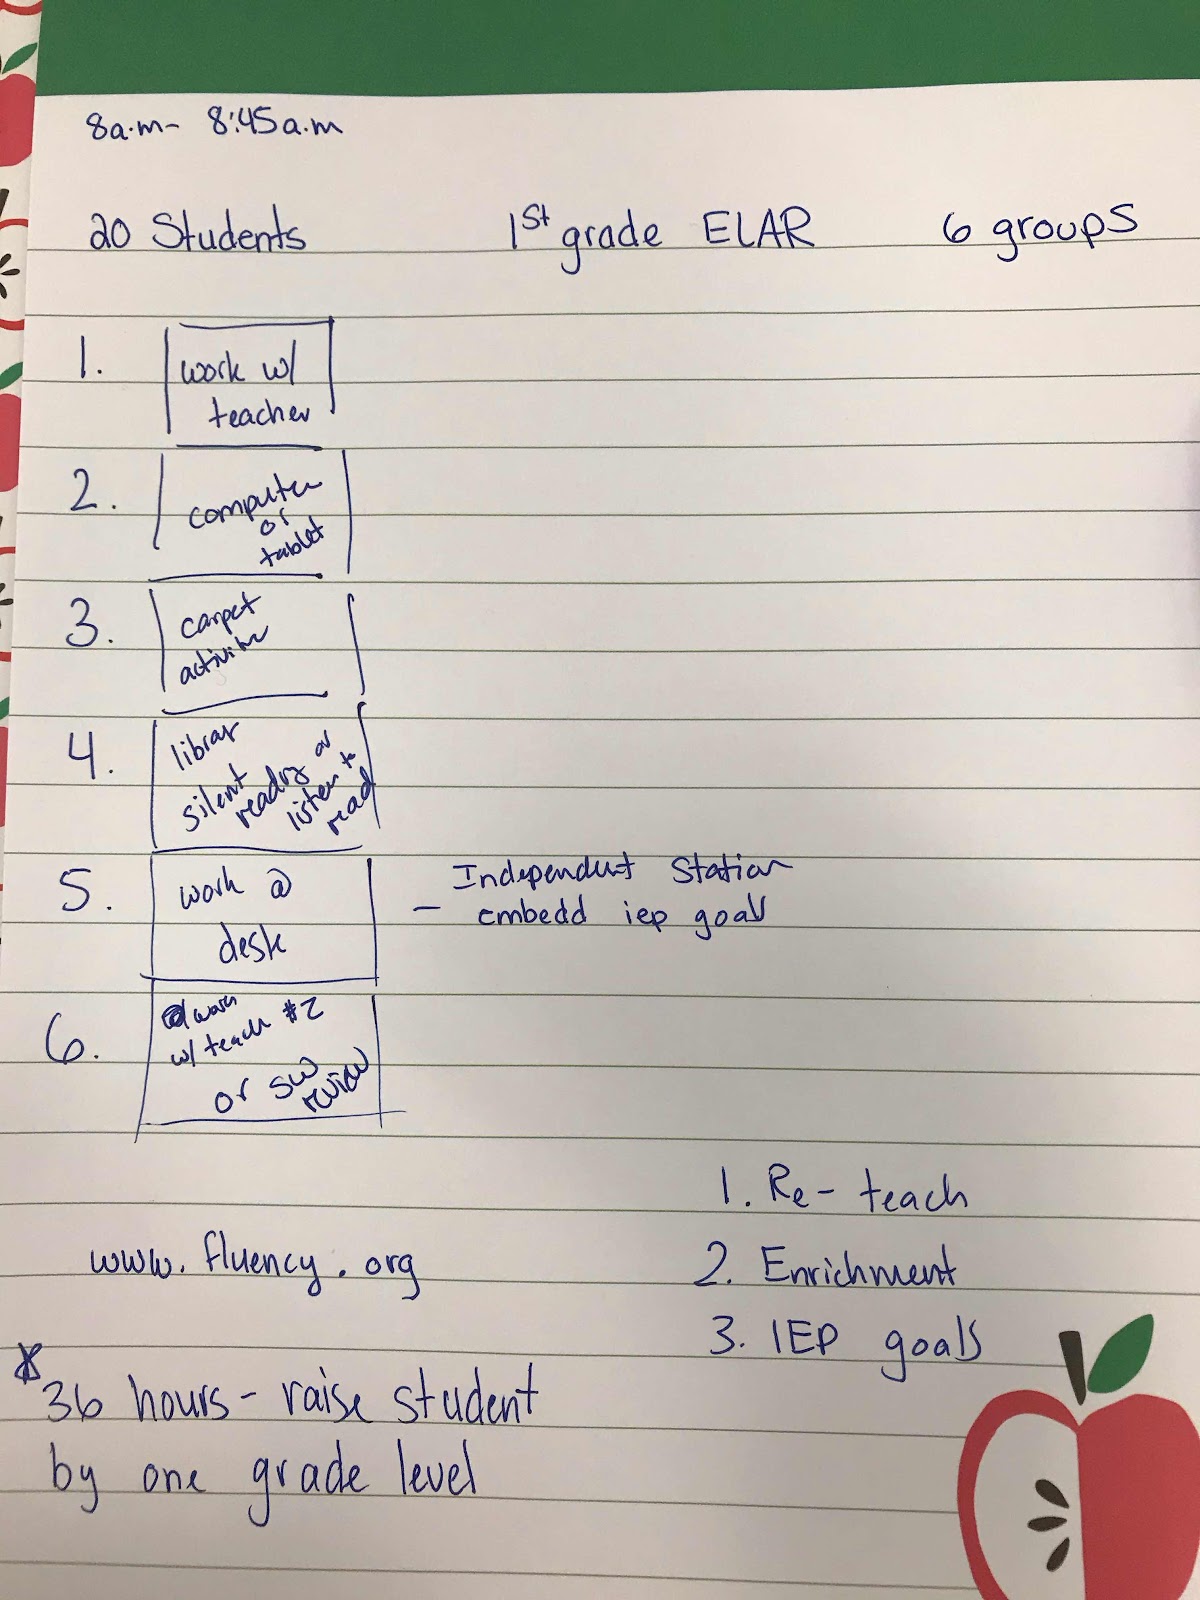 8a.m- 8:45a.m
20 Students 1st grade ELAR 6 groups
1. work w/
teacher
2. computer
or
tablet
3. carpet
activity
4. library
silent reading or
listen to
read
5. work @
desk
Independent Station
- embedd iep goals
6. work
w/ teach #2
or SW
review
1. Re-teach
2. Enrichment
3. IEP goals
www.fluency.org
* 36 hours - raise student
by one grade level